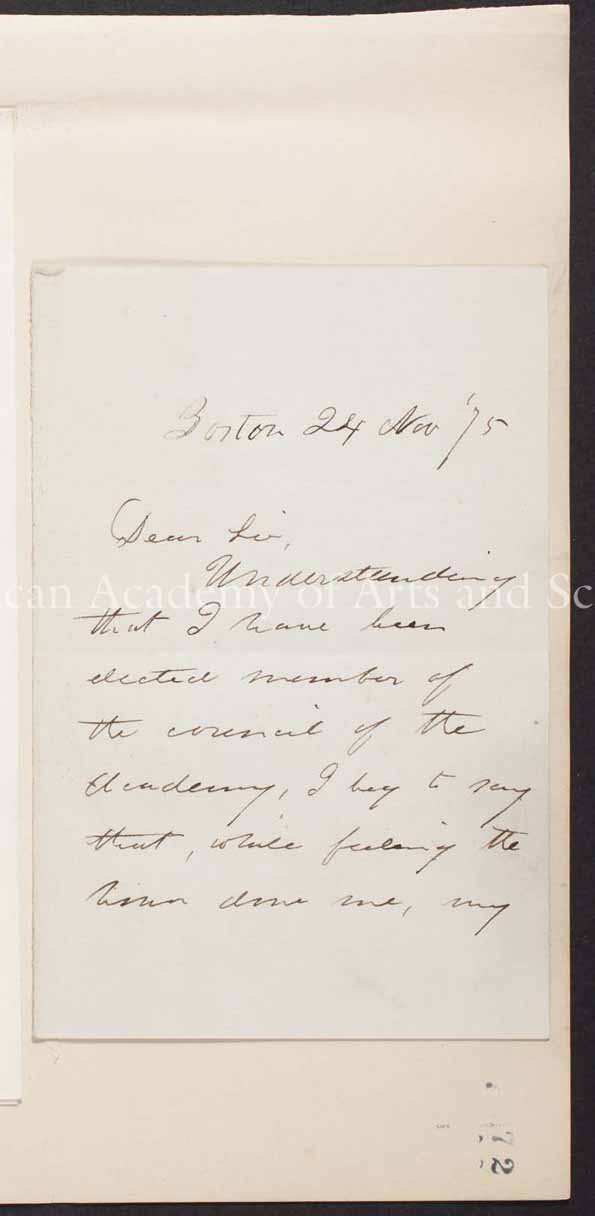 Boston 24 Nov '75
Dear Sir,
Understanding
can Academy of Arts and Sc
that I have been
elected member of
the council of the
Academy, I beg to say
that, while feeling the
honor done me, my
72